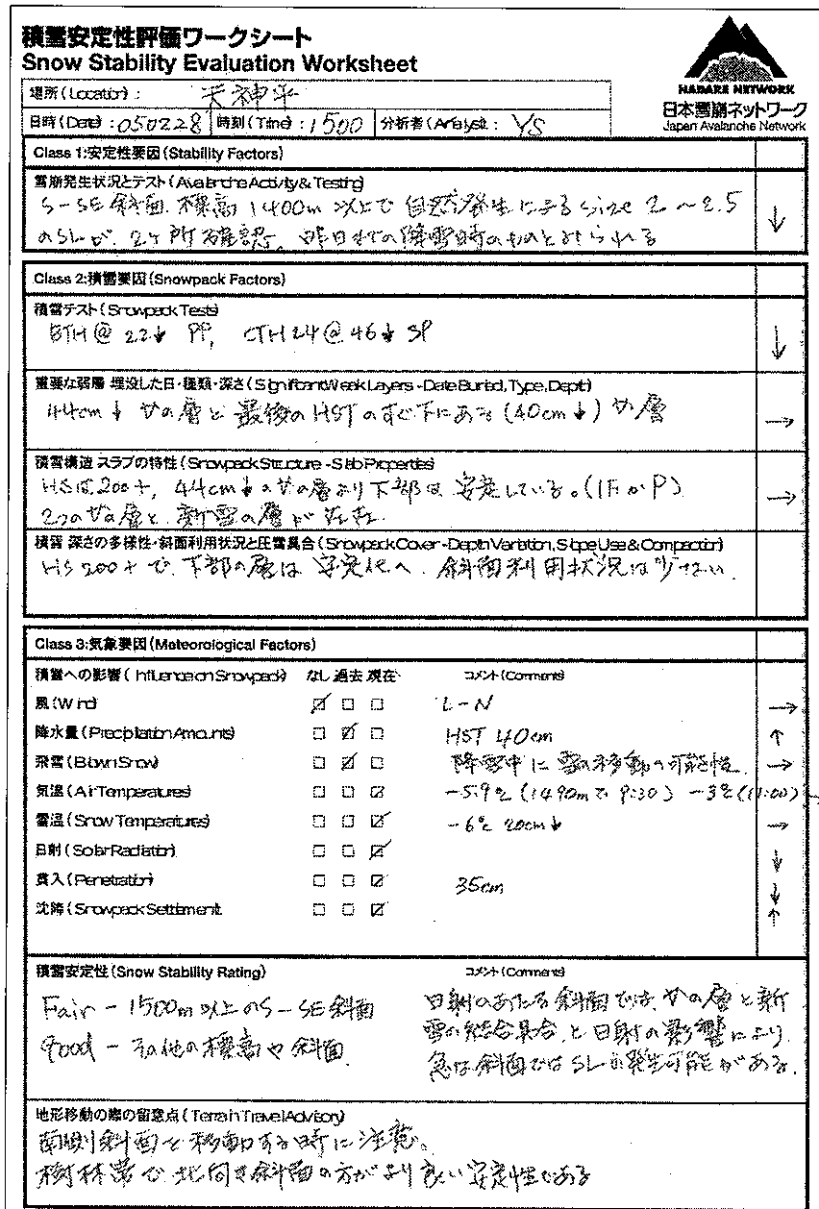 積雪安定性評価ワークシート
Snow Stability Evaluation Worksheet
NADARE NETWORK
日本雪崩ネットワーク
Japan Avalanche Network
場所(Location): 天神平
日時(Date): 050228 時刻(Time): 1500 分析者(Analyst): YS
Class 1:安定性要因(Stability Factors)
雪崩発生状況とテスト(Avalanche Activity & Testing)
S-SE斜面、標高1400m以上で自然発生によるsize 2～2.5
のSLが、2ヶ所確認。昨日までの降雪時のものとみられる
↓
Class 2:積雪要因(Snowpack Factors)
積雪テスト(Snowpack Tests)
BTH@22↓ PP, CTH24@46↓ SP
↓
重要な弱層 埋没した日・種類・深さ(Significant Weak Layers - Date Buried, Type, Depth)
44cm↓ サの層と最後のHSTのすぐ下にある(40cm↓)サ層
→
積雪構造 スラブの特性(Snowpack Structure - Slab Properties)
HSは200+, 44cm↓のサの層より下部は安定している。(1FかP)
2つのサの層と新雪の層が
→
積雪 深さの多様性・斜面利用状況と圧雪具合(Snowpack Cover - Depth Variation, Slope Use & Compaction)
HS 200+で、下部の層は安定化へ. 斜面利用状況は少ない.
Class 3:気象要因(Meteorological Factors)
積雪への影響(Influence on Snowpack) なし 過去 現在 コメント(Comments)
風(Wind) L-N →
降水量(Precipitation Amounts) HST 40cm ↑
飛雪(Blown Snow) 降雪中に雪の移動の可能性. →
気温(Air Temperatures) -5.9℃(1490mで9:30) -3℃(11:00) →
雪温(Snow Temperatures) -6℃ 20cm↓ →
日射(Solar Radiation) ↓
貫入(Penetration) 35cm ↓
沈降(Snowpack Settlement) ↑
積雪安定性(Snow Stability Rating) コメント(Comments)
Fair - 1500m以上のS-SE斜面
Good - その他の標高や斜面
日射のあたる斜面では、サの層と新
雪の結合具合、と日射の影響により
急な斜面ではSLの発生可能がある.
地形移動の際の留意点(Terrain Travel Advisory)
南側斜面を移動する時に注意。
樹林帯で、北向き斜面の方がより良い安定性である